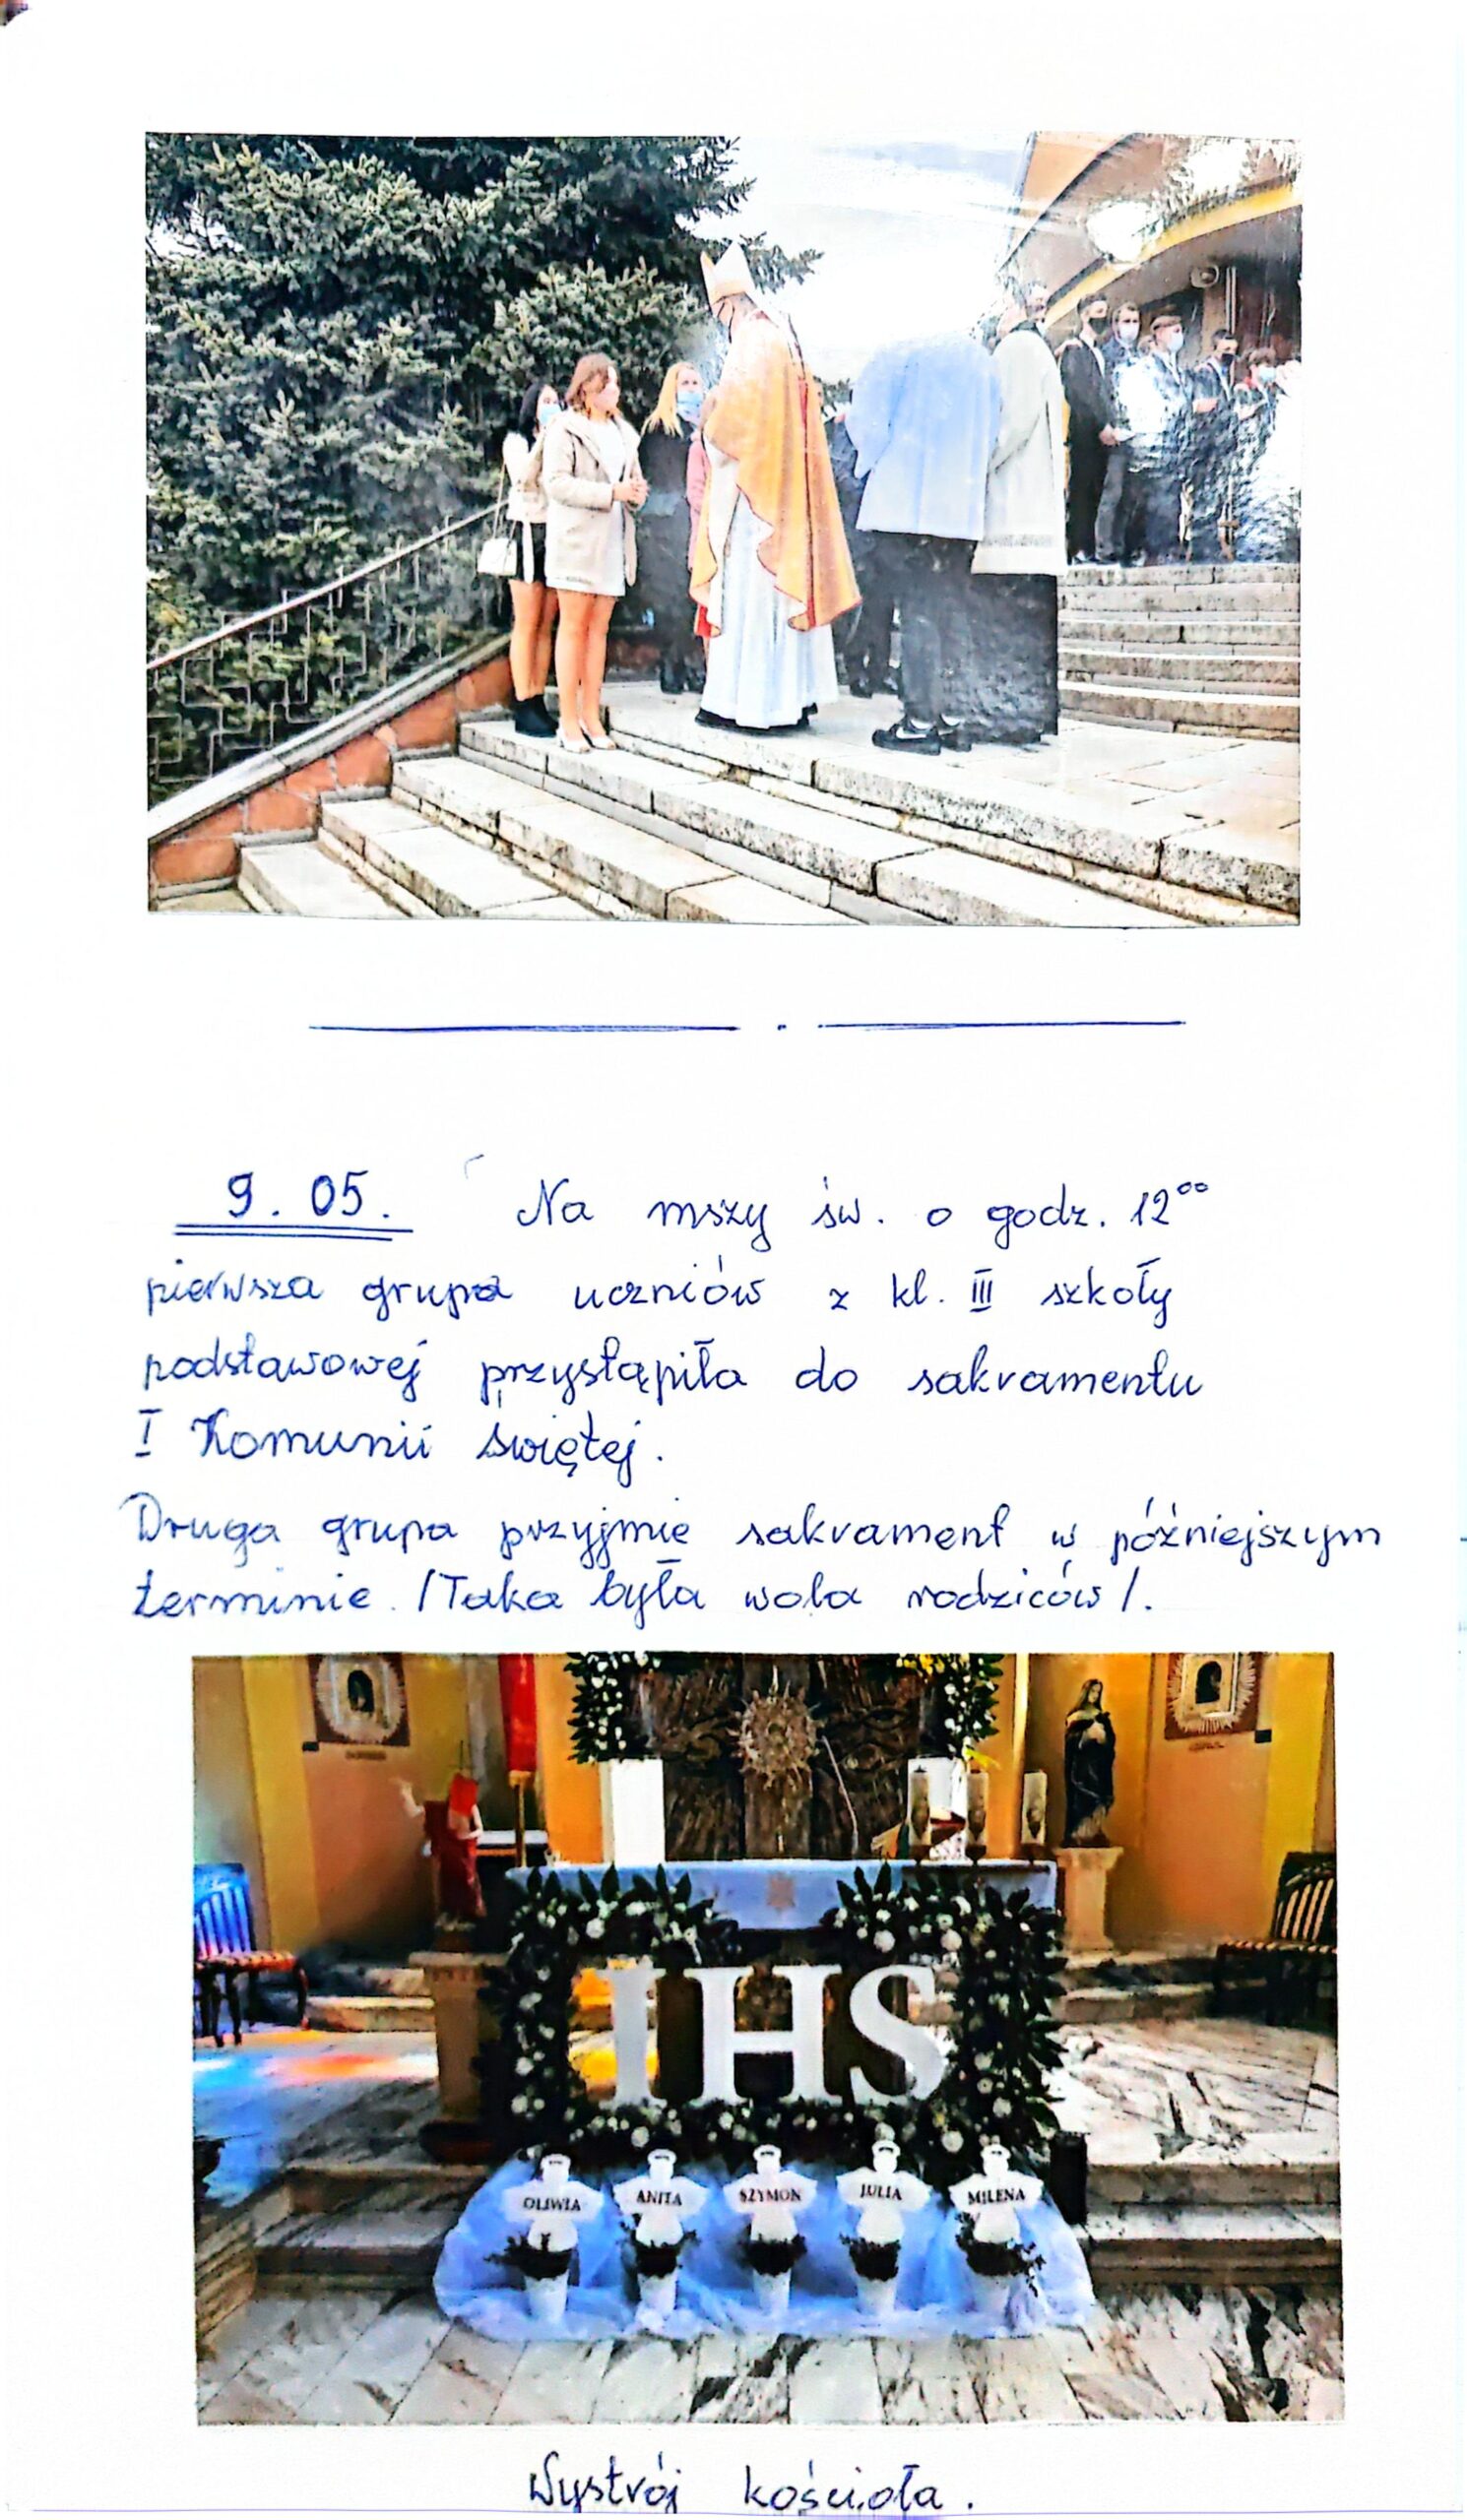 9. 05. Na mszy św. o godz. 12⁰⁰
pierwsza grupa uczniów z kl. III szkoły
podstawowej przystąpiła do sakramentu
I Komunii świętej.
Druga grupa przyjmie sakrament w późniejszym
terminie. /Taka była wola rodziców/.
IHS
OLIWIA ANITA SZYMON JULIA MILENA
Wystrój kościoła.